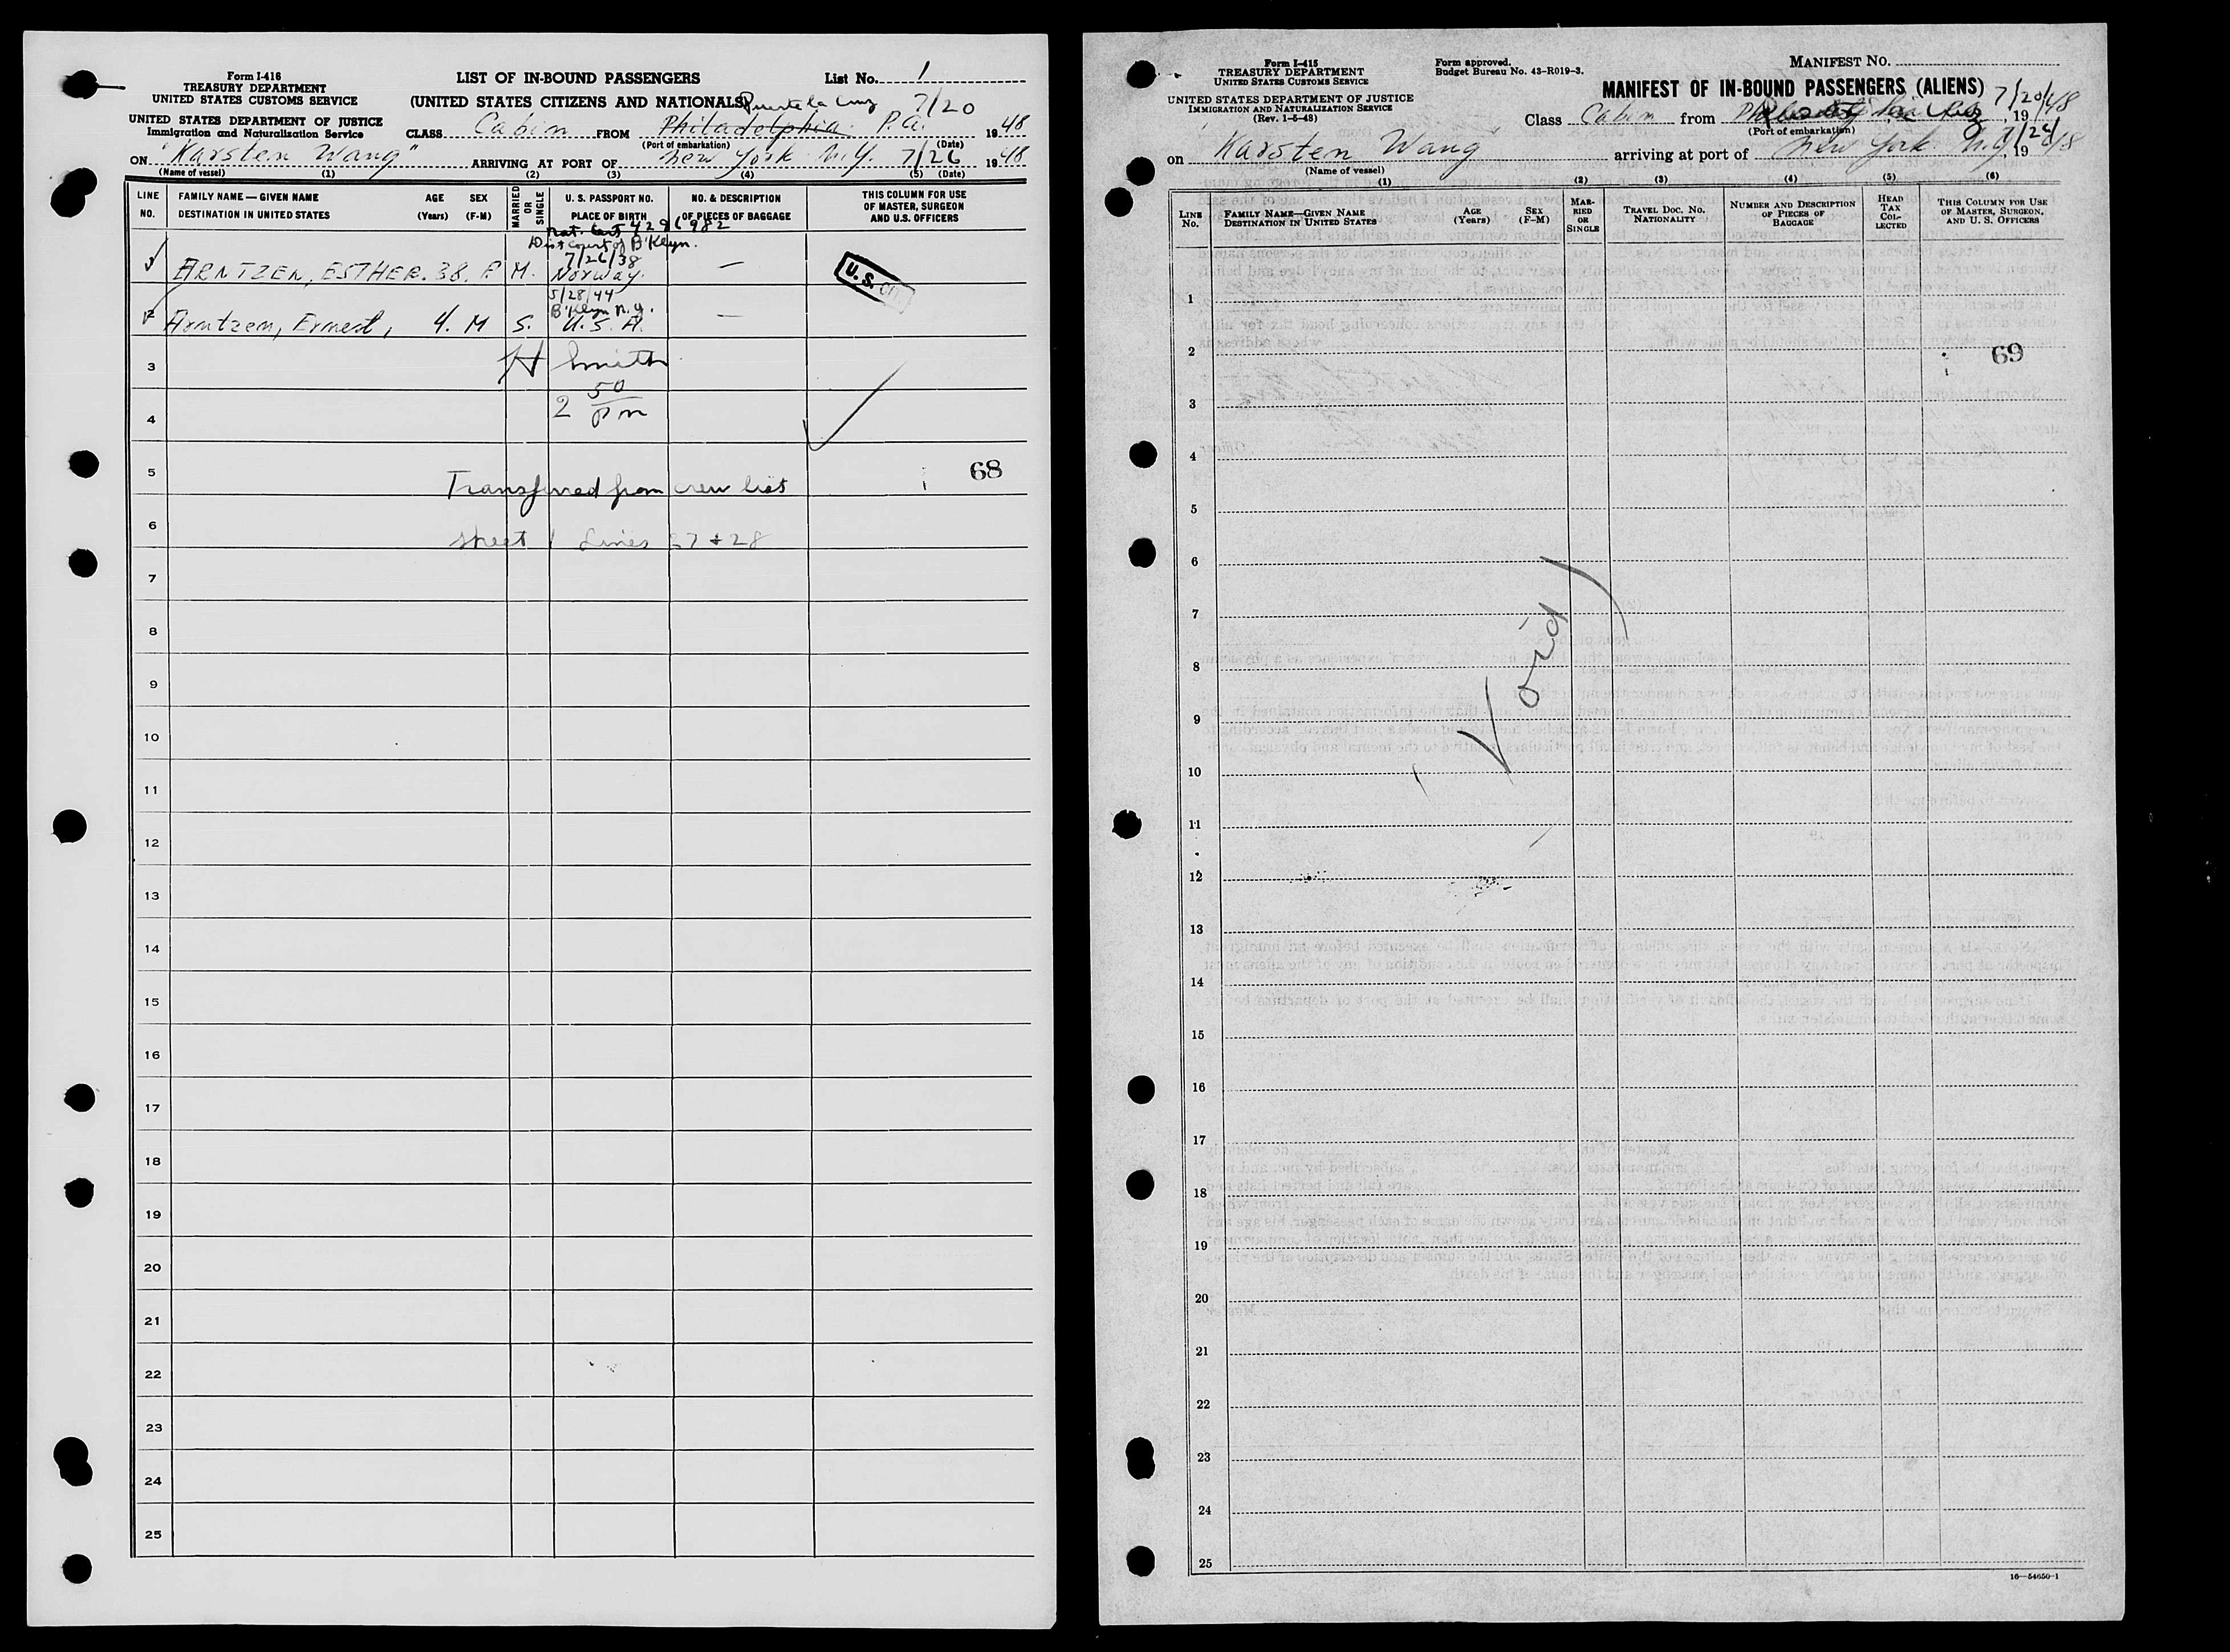 Form I-416
TREASURY DEPARTMENT
UNITED STATES CUSTOMS SERVICE
UNITED STATES DEPARTMENT OF JUSTICE
Immigration and Naturalization Service
LIST OF IN-BOUND PASSENGERS
(UNITED STATES CITIZENS AND NATIONALS)
List No. 1
Puerto la Cruz 7/20
CLASS Cabin FROM Philadelphia P.A. 1948
(Port of embarkation) (Date)
ON "Karsten Wang" ARRIVING AT PORT OF New York N.Y. 7/26 1948
(Name of vessel) (1) (2) (3) (4) (5) (Date)
LINE NO.
FAMILY NAME — GIVEN NAME
DESTINATION IN UNITED STATES
AGE (Years)
SEX (F-M)
MARRIED OR SINGLE
U. S. PASSPORT NO.
PLACE OF BIRTH
NO. & DESCRIPTION
OF PIECES OF BAGGAGE
THIS COLUMN FOR USE
OF MASTER, SURGEON
AND U.S. OFFICERS
Nat. Cert 4296982
Dist Court of B'Klyn.
7/26/38
ARNTZEN, ESTHER. 38. F. M. Norway. —
U.S.
5/28/44
B'Klyn N.Y.
Arntzen, Ernest, 4. M S. U.S.A. —
3 H Smith
4 2 50 pm
5 68
Transferred from crew list
6 sheet 1 Lines 27 + 28
7
8
9
10
11
12
13
14
15
16
17
18
19
20
21
22
23
24
25
Form I-415
TREASURY DEPARTMENT
UNITED STATES CUSTOMS SERVICE
UNITED STATES DEPARTMENT OF JUSTICE
IMMIGRATION AND NATURALIZATION SERVICE
(Rev. 1-6-48)
Form approved.
Budget Bureau No. 43-R019-3.
MANIFEST NO.
MANIFEST OF IN-BOUND PASSENGERS (ALIENS)
Class Cabin from 7/20/48, 19
(Port of embarkation)
on Karsten Wang arriving at port of New York N.Y. 7/26/48, 19
(Name of vessel)
(1) (2) (3) (4) (5) (6)
LINE NO.
FAMILY NAME—GIVEN NAME
DESTINATION IN UNITED STATES
AGE (Years)
SEX (F-M)
MARRIED OR SINGLE
TRAVEL DOC. NO.
NATIONALITY
NUMBER AND DESCRIPTION
OF PIECES OF
BAGGAGE
HEAD TAX COLLECTED
THIS COLUMN FOR USE
OF MASTER, SURGEON,
AND U. S. OFFICERS
1
2 69
3
4
5
6
7
Void
8
9
10
11
12
13
14
15
16
17
18
19
20
21
22
23
24
25
16—54650-1